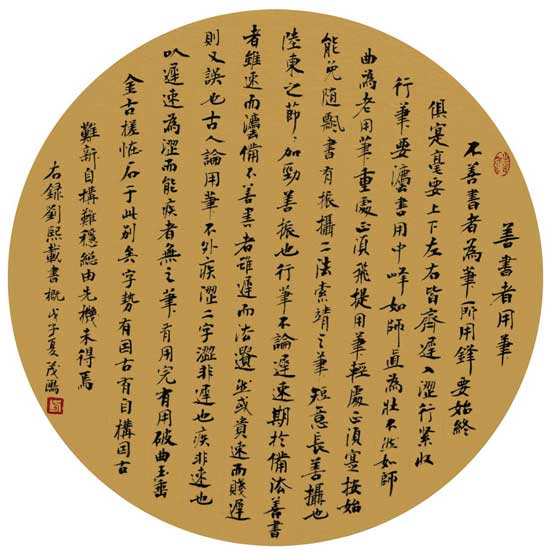 善書者用筆
不善書者為筆所用鋒要始終
俱寔毫要上下左右皆齊遲入澀行緊收
行筆要澀書用中峰如師直為壯不然如師
曲為老用筆重處正須飛提用筆輕處正須寔按始
能免随飄書有振攝二法索靖之筆短意長善攝也
陸柬之節節加勁善振也行筆不論遲速期於備法善書
者雖速而法備不善書者雖遲而法遺然或貴速而賤遲
則又誤也古人論用筆不外疾澀二字澀非遲也疾非速也
以遲速為澀而能疾者無之筆有用完有用破曲玉垂
金古槎怪石于此別矣字勢有因古有自構因古
難新自構難穩總由先機未得焉
右録劉熙載書概戊子夏茂